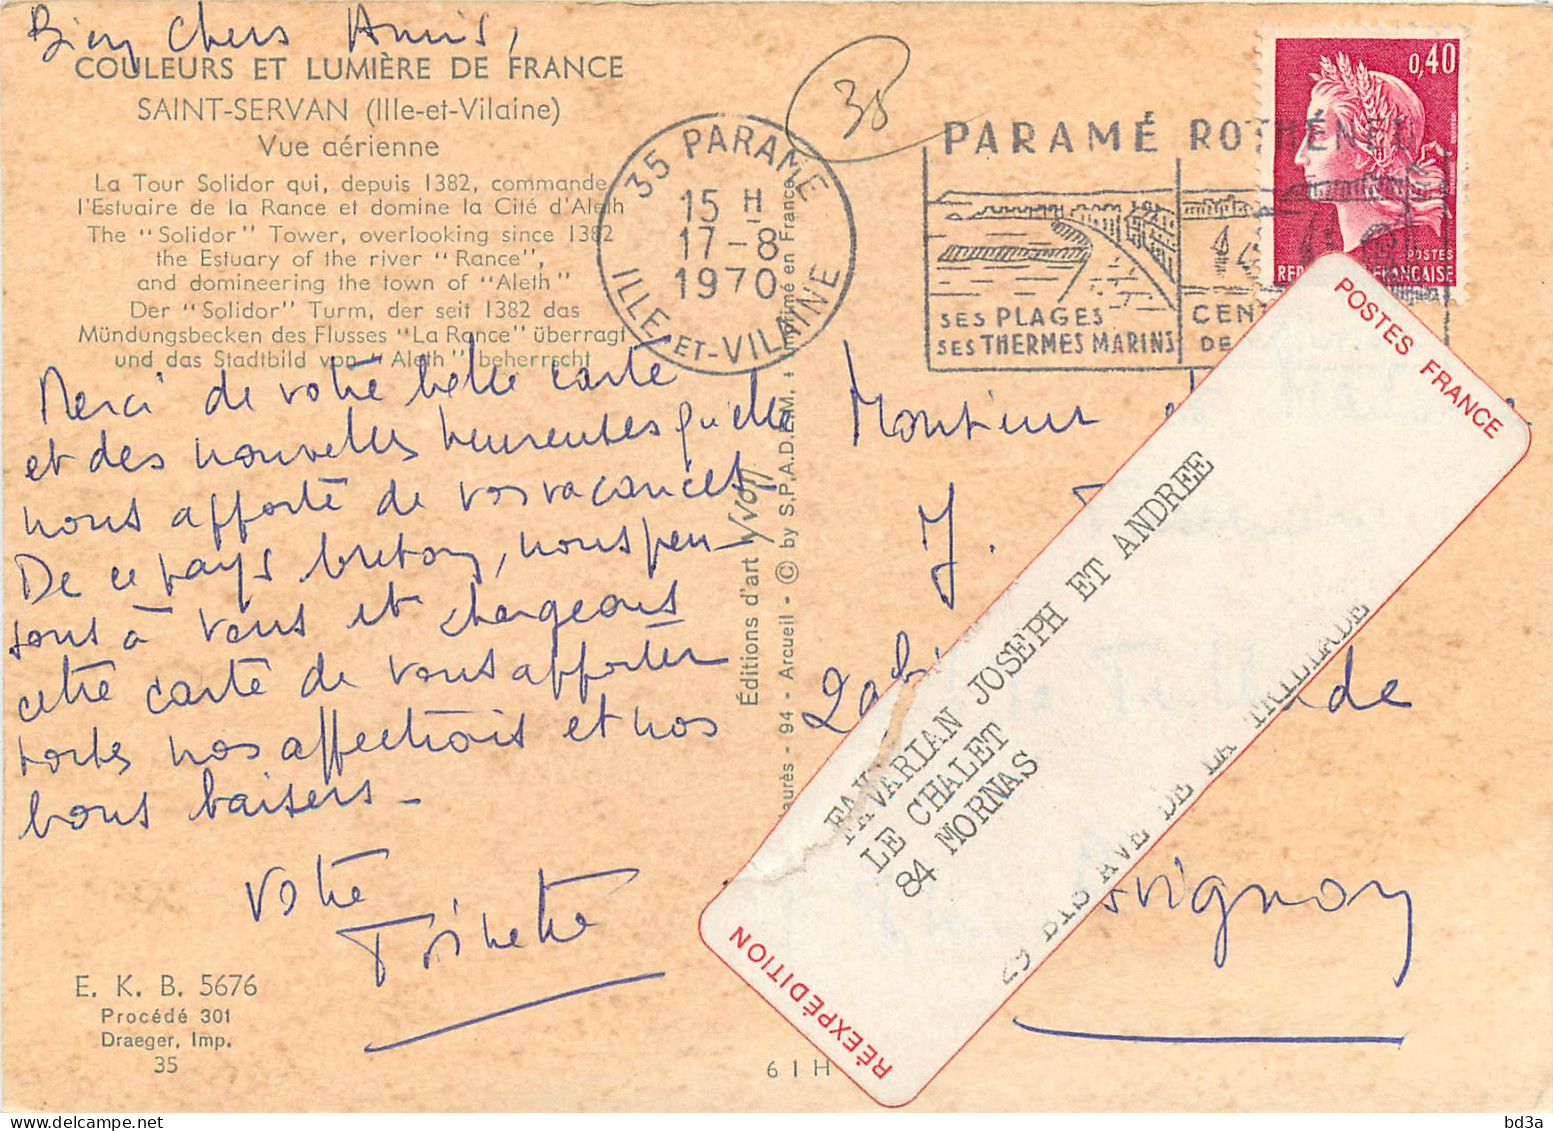 Bien chers Amis,
COULEURS ET LUMIÈRE DE FRANCE
SAINT-SERVAN (Ille-et-Vilaine)
Vue aérienne
La Tour Solidor qui, depuis 1382, commande
l'Estuaire de la Rance et domine la Cité d'Aleth
The "Solidor" Tower, overlooking since 1382
the Estuary of the river "Rance",
and domineering the town of "Aleth"
Der "Solidor" Turm, der seit 1382 das
Mündungsbecken des Flusses "La Rance" überragt
und das Stadtbild von "Aleth" beherrscht
Merci de votre belle carte
et des nouvelles heureuses qu'elle
nous apporte de vos vacances -
De ce pays breton, nous pen-
sons à vous et chargeons
cette carte de vous apporter
toutes nos affections et nos
bons baisers -
votre
Toinette
E. K. B. 5676
Procédé 301
Draeger, Imp.
35
Éditions d'art YVON
Jaurès - 94 - Arcueil - © by S.P.A.D.E.M. + Imprimé en France
6 1 H
38
35 PARAMÉ
15 H
17-8
1970
ILLE-ET-VILAINE
PARAMÉ ROTHÉNEUF
SES PLAGES
SES THERMES MARINS
CEN
DE
0,40
POSTES
REPUBLIQUE FRANÇAISE
Monsieur
J.
de
Avignon
POSTES FRANCE
FAVARIAN JOSEPH ET ANDREE
LE CHALET
84 MORNAS
29 BIS AVE DE LA TRILLADE
RÉEXPÉDITION